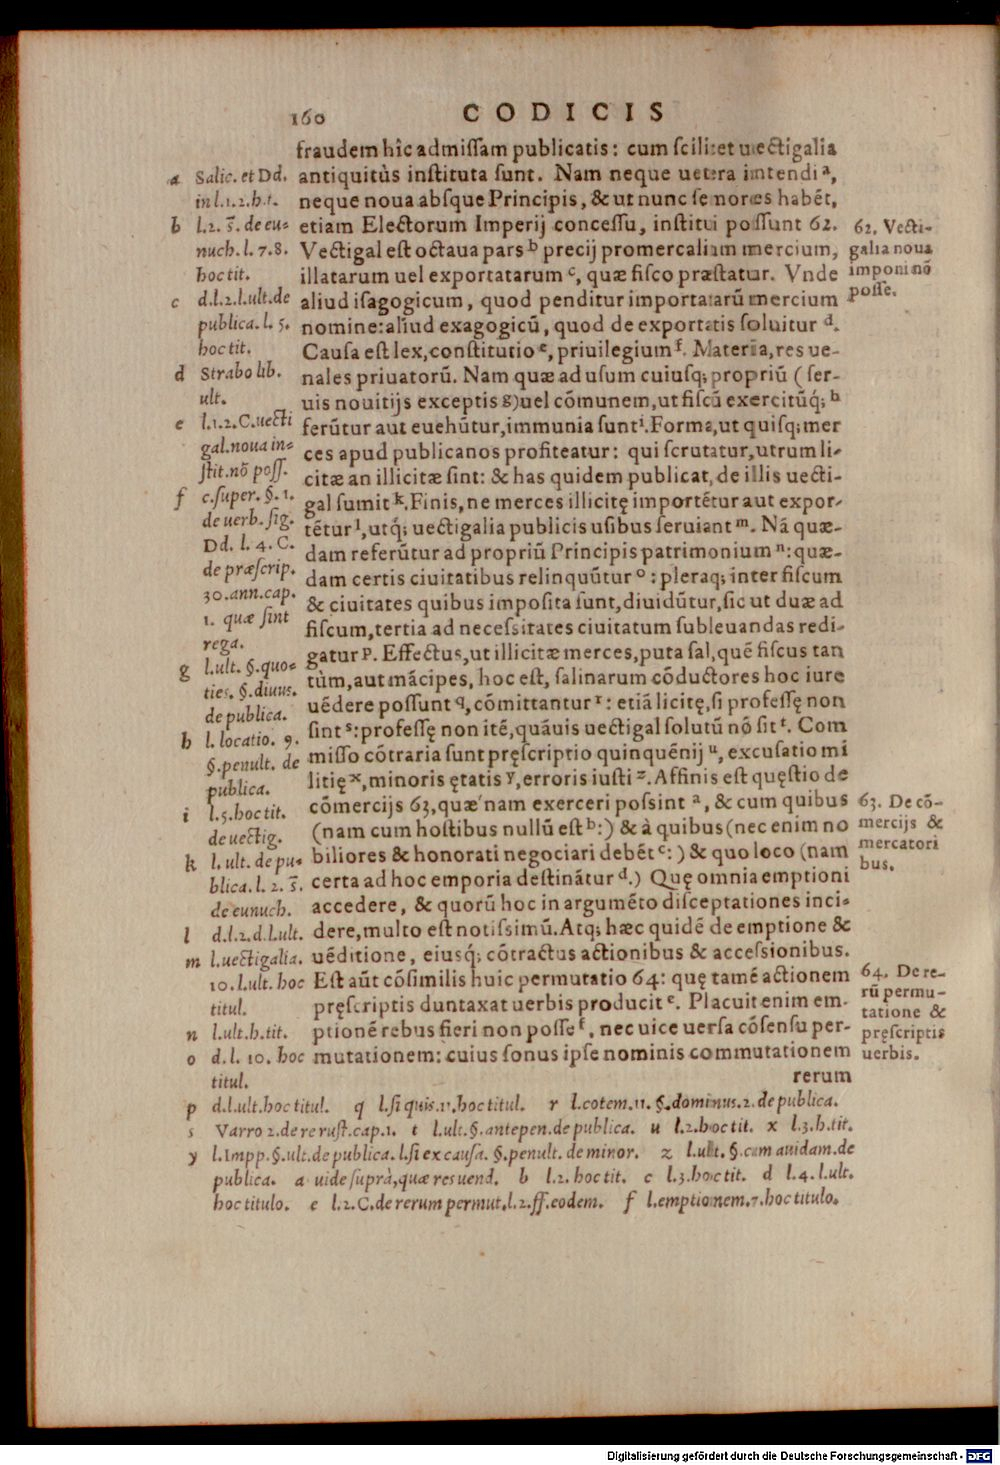 160 CODICIS
fraudem hîc admiſſam publicatis: cum ſcilicet uectigalia
antiquitùs inſtituta ſunt. Nam neque uetera intendi ᵃ,
neque noua abſque Principis, & ut nunc ſe mores habēt,
etiam Electorum Imperij conceſſu, inſtitui poſſunt 62.
Vectigal eſt octaua pars ᵇ precij promercalium mercium,
illatarum uel exportatarum ᶜ, quæ fiſco præſtatur. Vnde
aliud iſagogicum, quod penditur importatarū mercium
nomine: aliud exagogicū, quod de exportatis ſoluitur ᵈ.
Cauſa eſt lex, conſtitutio ᵉ, priuilegium ᶠ. Materia, res ue-
nales priuatorū. Nam quæ ad uſum cuiuſq; propriū (ſer-
uis nouitijs exceptis ᵍ) uel cōmunem, ut fiſcū exercitūq́; ʰ
ferūtur aut euehūtur, immunia ſunt ⁱ. Forma, ut quiſq; mer
ces apud publicanos profiteatur: qui ſcrutatur, utrum li-
citæ an illicitæ ſint: & has quidem publicat, de illis uecti-
gal ſumit ᵏ. Finis, ne merces illicitę importētur aut expor-
tētur ˡ, utq́; uectigalia publicis uſibus ſeruiant ᵐ. Nā quæ-
dam referūtur ad propriū Principis patrimonium ⁿ: quæ-
dam certis ciuitatibus relinquūtur ᵒ: pleraq; inter fiſcum
& ciuitates quibus impoſita ſunt, diuidūtur, ſic ut duæ ad
fiſcum, tertia ad neceſsitates ciuitatum ſubleuandas redi-
gatur ᵖ. Effectus, ut illicitæ merces, puta ſal, quē fiſcus tan
tùm, aut mācipes, hoc eſt, ſalinarum cōductores hoc iure
uēdere poſſunt q, cōmittantur ʳ: etiā licitę, ſi profeſſę non
ſint ˢ: profeſſę non itē, quāuis uectigal ſolutū nō ſit ᵗ. Com
miſſo cōtraria ſunt pręſcriptio quinquēnij ᵘ, excuſatio mi
litię ˣ, minoris ętatis ʸ, erroris iuſti ᶻ. Affinis eſt quęſtio de
cōmercijs 63, quæ nam exerceri poſsint ᵃ, & cum quibus
(nam cum hoſtibus nullū eſt ᵇ:) & à quibus (nec enim no
biliores & honorati negociari debēt ᶜ:) & quo loco (nam
certa ad hoc emporia deſtinātur ᵈ.) Quę omnia emptioni
accedere, & quorū hoc in argumēto diſceptationes inci-
dere, multo eſt notiſsimū. Atq; hæc quidē de emptione &
uēditione, eiusq́; cōtractus actionibus & acceſsionibus.
Eſt aūt cōſimilis huic permutatio 64: quę tamē actionem
pręſcriptis duntaxat uerbis producit ᵉ. Placuit enim em-
ptionē rebus fieri non poſſe ᶠ, nec uice uerſa cōſenſu per-
mutationem: cuius ſonus ipſe nominis commutationem
rerum
a Salic. et Dd.
in l.1.2.h.t.
b l.2. §. de eu-
nuch. l. 7.8.
hoc tit.
c d.l.2.l.ult.de
publica. l. 5.
hoc tit.
d Strabo lib.
ult.
e l.1.2.C.uecti
gal.noua in-
ſtit.nō poſſ.
f c.ſuper. §. 1.
de uerb. ſig.
Dd. l. 4. C.
de præſcrip.
30.ann.cap.
1. quæ ſint
rega.
g l.ult. §.quo-
ties. §.diuus.
de publica.
h l. locatio. 9.
§.penult. de
publica.
i l.5.hoc tit.
de uectig.
k l. ult. de pu-
blica. l. 2. §.
de eunuch.
l d.l.2.d.l.ult.
m l.uectigalia.
10.l.ult. hoc
titul.
n l.ult.h.tit.
o d. l. 10. hoc
titul.
62. Vecti-
galia noua
imponi nō
poſſe.
63. De cō-
mercijs &
mercatori
bus.
64. De re-
rū permu-
tatione &
pręſcriptis
uerbis.
p d.l.ult.hoc titul. q l.ſi quis.11.hoc titul. r l.cotem.11. §.dominus.2.de publica.
s Varro 2.de re ruſt.cap.1. t l.ult.§.antepen.de publica. u l.2.hoc tit. x l.3.h.tit.
y l.Impp.§.ult.de publica.l.ſi ex cauſa. §.penult. de minor. z l.ult. §.cum quidam.de
publica. a uide ſuprà,quæ res uend. b l.2. hoc tit. c l.3.hoc tit. d l.4. l.ult.
hoc titulo. e l.2.C.de rerum permut.l.2.ff.eodem. f l.emptionem.7.hoc titulo.
Digitalisierung gefördert durch die Deutsche Forschungsgemeinschaft - DFG